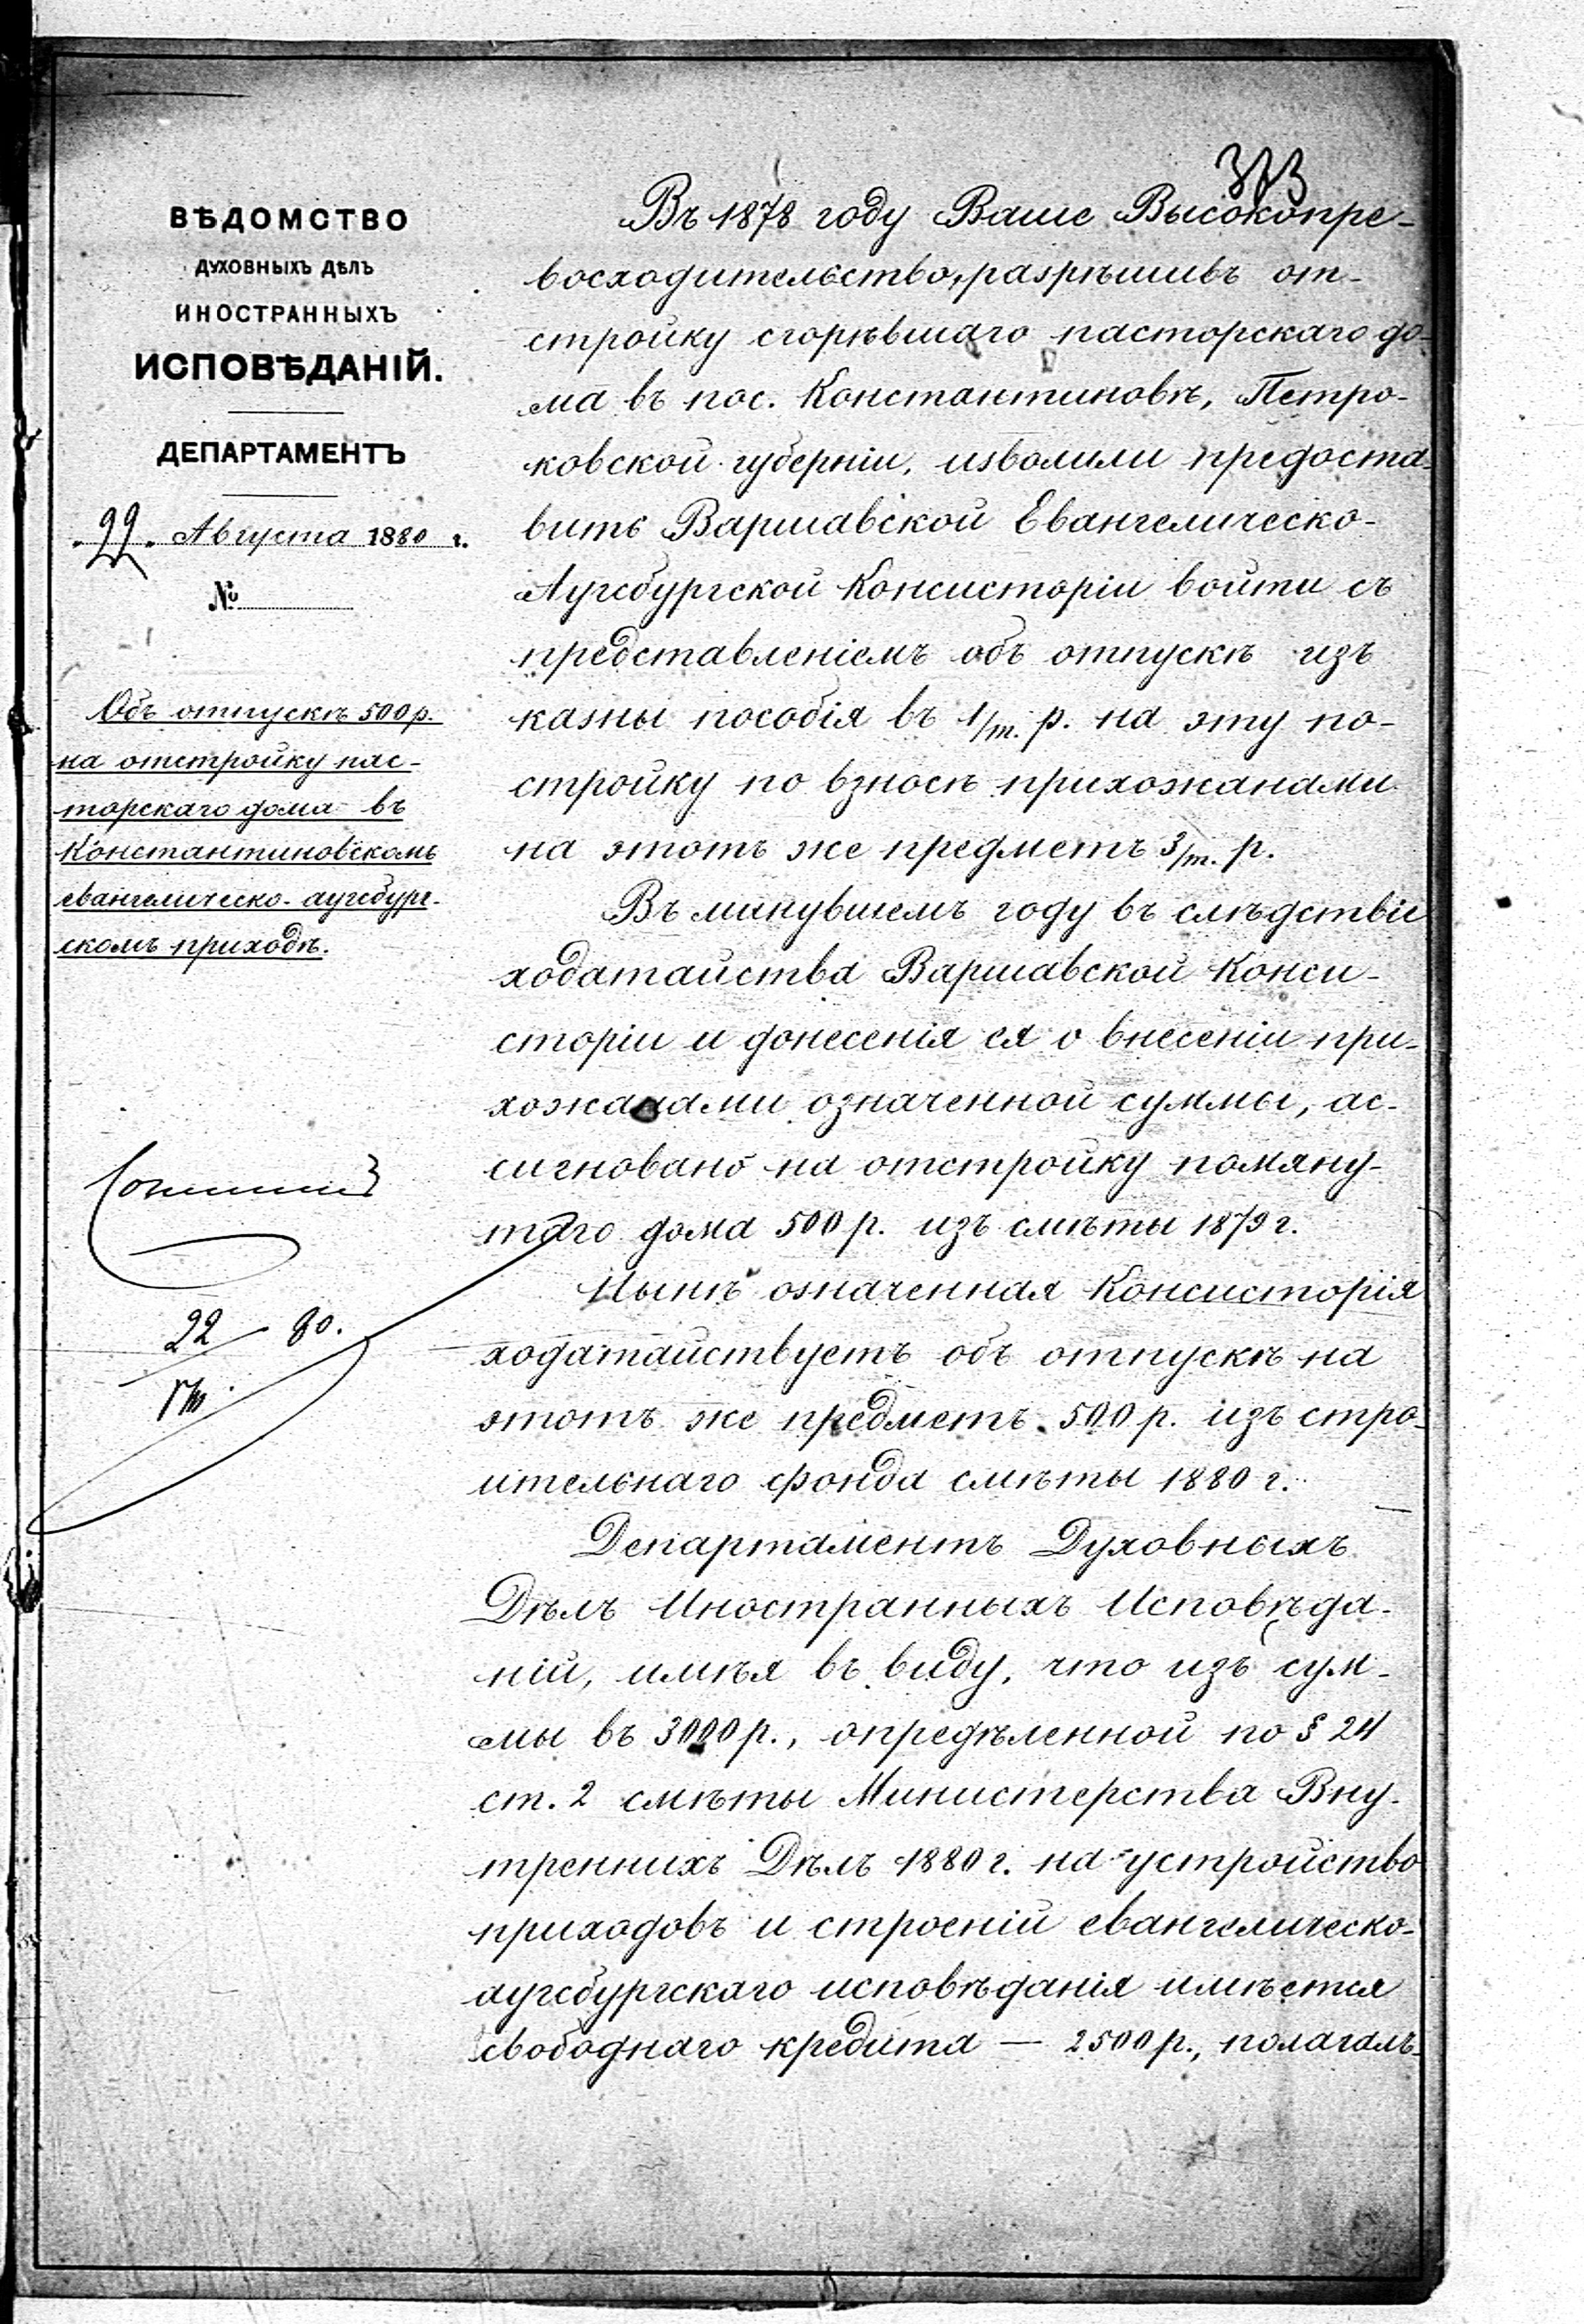 ВѢДОМСТВО
ДУХОВНЫХЪ ДѢЛЪ
ИНОСТРАННЫХЪ
ИСПОВѢДАНІЙ.
ДЕПАРТАМЕНТЪ
22 Августа 1880 г.
№
Объ отпускѣ 500 р.
на отстройку пас-
торскаго дома въ
Константиновскомъ
евангелическо-аугсбург-
скомъ приходѣ.
22 80.
VIII
Въ 1878 году Ваше Высокопре-
восходительство, разрѣшивъ от-
стройку сгорѣвшаго пасторскаго до-
ма въ пос. Константиновѣ, Петро-
ковской губерніи, изволили предоста-
вить Варшавской Евангелическо-
Аугсбургской Консисторіи войти съ
представленіемъ объ отпускѣ изъ
казны пособія въ 1/т. р. на эту по-
стройку по взносѣ прихожанами
на этотъ же предметъ 3/т. р.
Въ минувшемъ году въ слѣдствіе
ходатайства Варшавской Конси-
сторіи и донесенія ея о внесеніи при-
хожанами означенной суммы, ас-
сигновано на отстройку помяну-
таго дома 500 р. изъ смѣты 1879 г.
Нынѣ означенная Консисторія
ходатайствуетъ объ отпускѣ на
этотъ же предметъ 500 р. изъ стро-
ительнаго фонда смѣты 1880 г.
Департаментъ Духовныхъ
Дѣлъ Иностранныхъ Исповѣда-
ній, имѣя въ виду, что изъ сум-
мы въ 3000 р., опредѣленной по § 24
ст. 2 смѣты Министерства Вну-
треннихъ Дѣлъ 1880 г. на устройство
приходовъ и строеній евангелическо-
аугсбургскаго исповѣданія имѣется
свободнаго кредита — 2500 р., полагалъ-